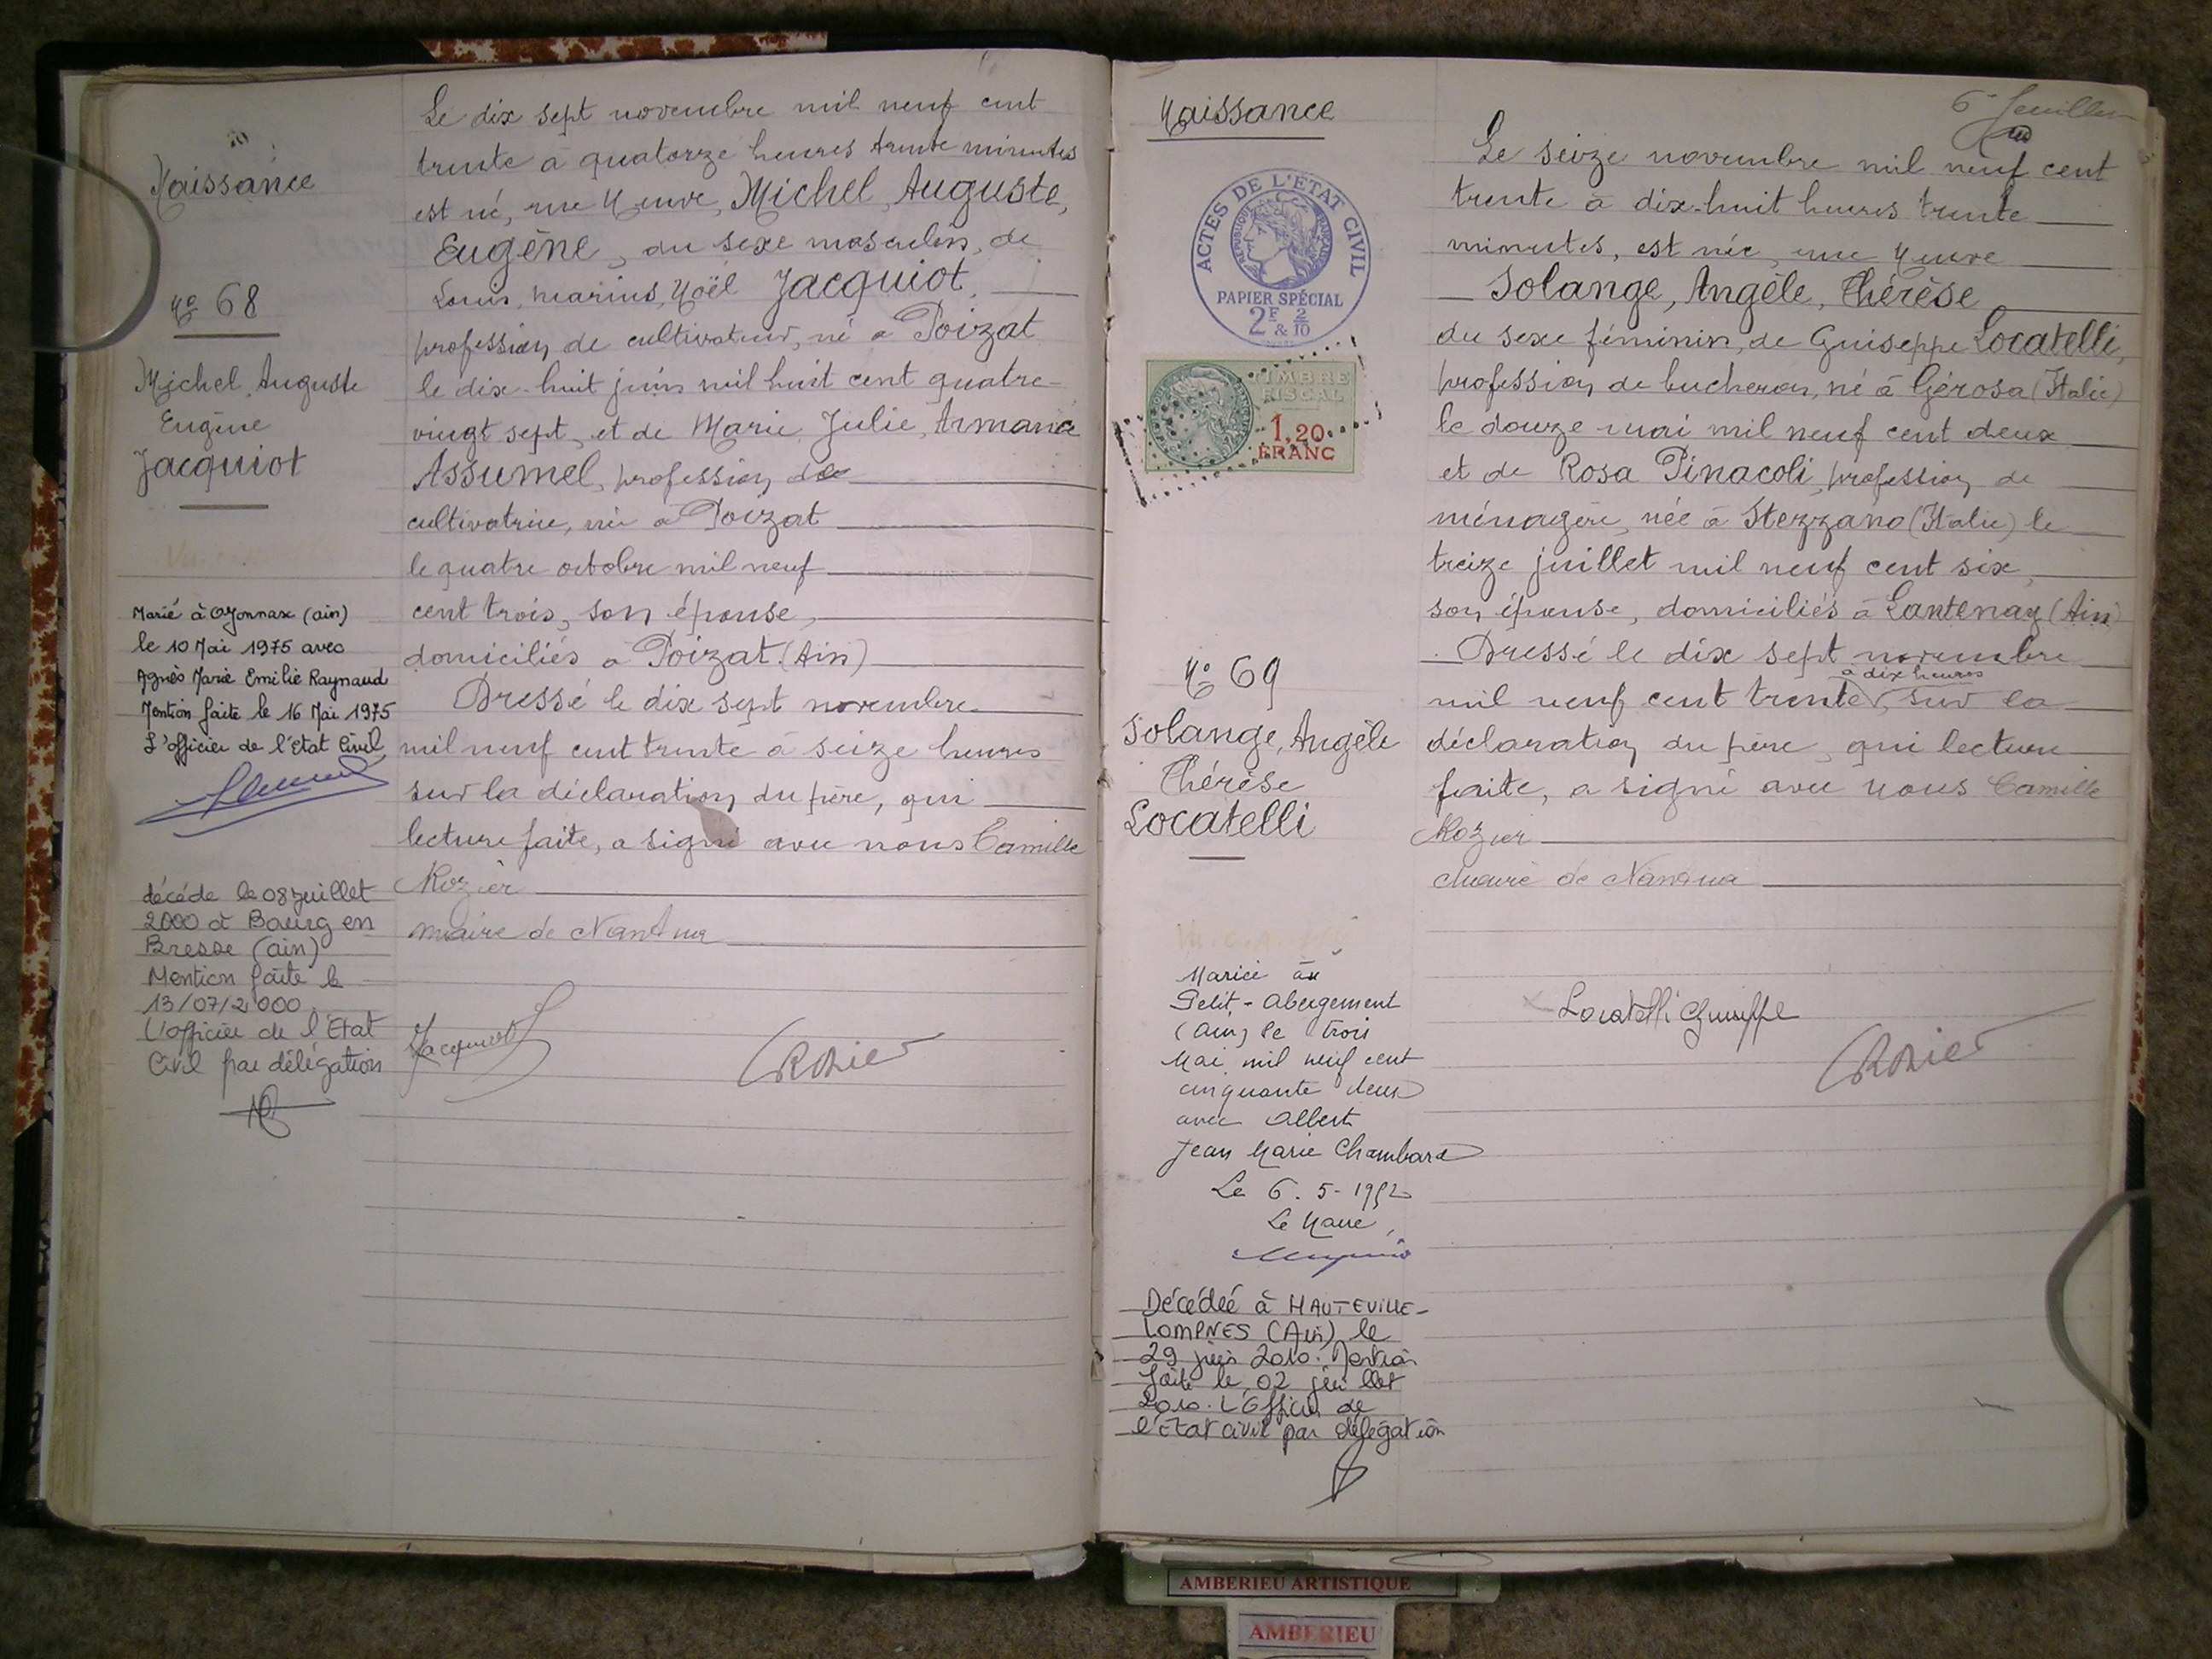 Naissance
Nº 68
Michel, Auguste
Eugène
Jacquiot
Marié à Oyonnax (ain)
le 10 Mai 1975 avec
Agnès Marie Emilie Raynaud
Mention faite le 16 Mai 1975
L'officier de l'Etat Civil
décédé le 08 juillet
2000 à Bourg en
Bresse (ain)
Mention faite le
13/07/2000
L'officier de l'Etat
Civil par délégation
Le dix sept novembre mil neuf cent
trente à quatorze heures trente minutes
est né, rue Neuve, Michel, Auguste,
Eugène, du sexe masculin, de
Louis, Marius, Noël Jacquiot,
profession de cultivateur, né à Poizat
le dix-huit juin mil huit cent quatre-
vingt sept, et de Marie, Julie, Armance
Assumel, profession de
cultivatrice, née à Poizat
le quatre octobre mil neuf
cent trois, son épouse,
domiciliés à Poizat (Ain)
Dressé le dix sept novembre
mil neuf cent trente à seize heures
sur la déclaration du père, qui
lecture faite, a signé avec nous Camille
Rozier
maire de Nantua
Jacquiot
CRozier
Naissance
ACTES DE L'ETAT CIVIL
REPUBLIQUE FRANCAISE
PAPIER SPÉCIAL
2F & 2/10
TIMBRE
FISCAL
1,20
FRANC
Nº 69
Solange, Angèle
Thérèse
Locatelli
Mariée au
Petit-Abergement
(Ain) le trois
Mai mil neuf cent
cinquante deux
avec Albert
Jean Marie Chambard
Le 6.5-1952
Le Maire,
Décédée à HAUTEVILLE-
LOMPNES (Ain) le
29 juin 2010. Mention
faite le 02 juillet
2010. L'Officier de
l'Etat civil par délégation
6e feuillet
Le seize novembre mil neuf cent
trente à dix-huit heures trente
minutes, est née, rue Neuve
Solange, Angèle, Thérèse
du sexe féminin, de Guiseppe Locatelli,
profession de bucheron, né à Gérosa (Italie)
le douze mai mil neuf cent deux
et de Rosa Pinacoli, profession de
ménagère, née à Stezzano (Italie) le
treize juillet mil neuf cent six,
son épouse, domiciliés à Lantenay (Ain)
Dressé le dix sept novembre
à dix heures
mil neuf cent trente, sur la
déclaration du père, qui lecture
faite, a signé avec nous Camille
Rozier
maire de Nantua
Locatelli Guiseppe
CRozier
AMBERIEU ARTISTIQUE
AMBERIEU